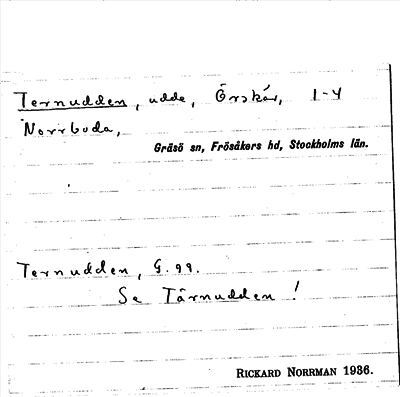 Ternudden, udde, Örskär, 1-4
Norrboda,
Gräsö sn, Frösåkers hd, Stockholms län.
Ternudden, G.99.
Se Tärnudden!
RICKARD NORRMAN 1936.